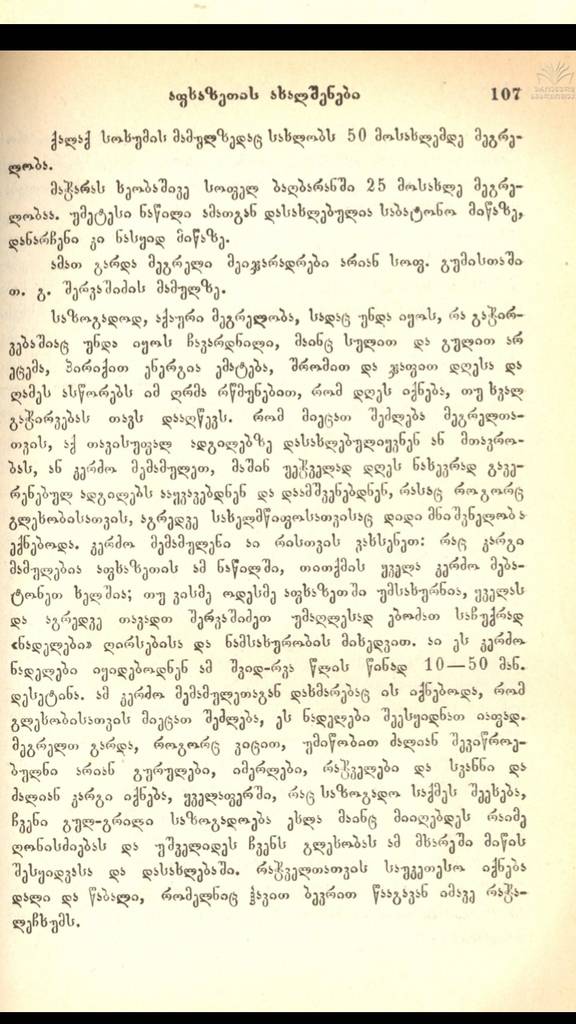 აფხაზეთის ახალშენები 107
ქალაქ სოხუმის მამულზედაც სახლობს 50 მოსახლემდე მეგრე-
ლობა.
მაჭარას ხეობაშივე სოფელ ბაღბარანში 25 მოსახლე მეგრე-
ლობაა. უმეტესი ნაწილი ამათგან დასახლებულია საბატონო მიწაზე,
დანარჩენი კი ნასყიდ მიწაზე.
ამათ გარდა მეგრელი მეიჯარადრები არიან სოფ. გუმისთაში
თ. გ. შერვაშიძის მამულზე.
საზოგადოდ, აქაური მეგრელობა, სადაც უნდა იყოს, რა გაჭირ-
ვებაშიაც უნდა იყოს ჩავარდნილი, მაინც სულით და გულით არ
ეცემა, პირიქით ენერგია ემატება, შრომით და ჯაფით დღესა და
ღამეს ასწორებს იმ ღრმა რწმუნებით, რომ დღეს იქნება, თუ ხვალ
გაჭირვებას თავს დააღწევს. რომ მიეცათ შეძლება მეგრელთა-
თვის, აქ თავისუფალ ადგილებზე დასახლებულიყვნენ ან მთავრო-
ბას, ან კერძო მემამულეთ, მაშინ უეჭველად დღეს ნახევრად გავე-
რენებულ ადგილებს ააყვავებდნენ და დაამშვენებდნენ, რასაც როგორც
გლეხობისათვის, აგრედვე სახელმწიფოსათვისაც დიდი მნიშვნელობა
ექნებოდა. კერძო მემამულენი აი რისთვის ვახსენეთ: რაც კარგი
მამულებია აფხაზეთის ამ ნაწილში, თითქმის ყველა კერძო მება-
ტონეთ ხელშია; თუ ვისმე ოდესმე აფხაზეთში უმსახურნია, ყველას
და აგრედვე თავადთ შერვაშიძეთ უმაღლესად ებოძათ საჩუქრად
«ნადელები» ღირსებისა და ნამსახურობის მიხედვით. აი ეს კერძო
ნადელები იყიდებოდნენ ამ შვიდ-რვა წლის წინად 10—50 მან.
დესეტინა. ამ კერძო მემამულეთაგან დახმარებაც ის იქნებოდა, რომ
გლეხობისათვის მიეცათ შეძლება, ეს ნადელები შეესყიდნათ იაფად.
მეგრელთ გარდა, როგორც ვიცით, უმიწობით ძალიან შევიწროე-
ბულნი არიან გურულები, იმერლები, რაჭველები და სვანნი და
ძალიან კარგი იქნება, ყველაფერში, რაც საზოგადო საქმეს შეეხება,
ჩვენი გულ-გრილი საზოგადოება ეხლა მაინც მიიღებდეს რაიმე
ღონისძიებას და უშველიდეს ჩვენს გლეხობას ამ მხარეში მიწის
შესყიდვასა და დასახლებაში. რაჭველთათვის საუკეთესო იქნება
დალი და წაბალი, რომელნიც ჰავით ბევრით წააგავან იმავე რაჭა-
ლეჩხუმს.